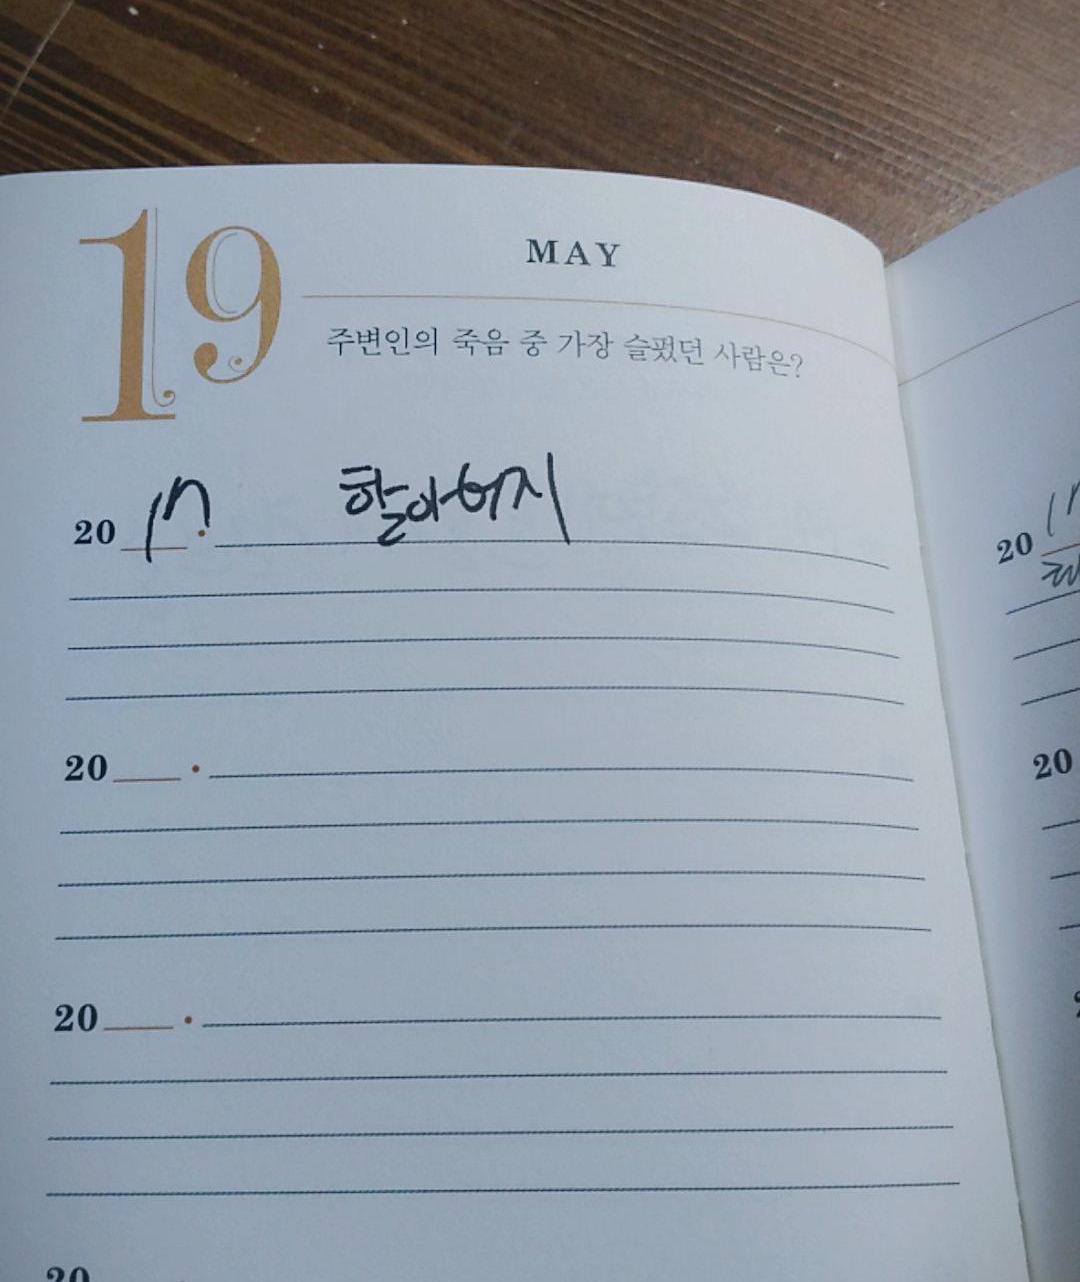 19
MAY
주변인의 죽음 중 가장 슬펐던 사람은?
2017 · 할아버지
20 ·
20 ·
20
20
20